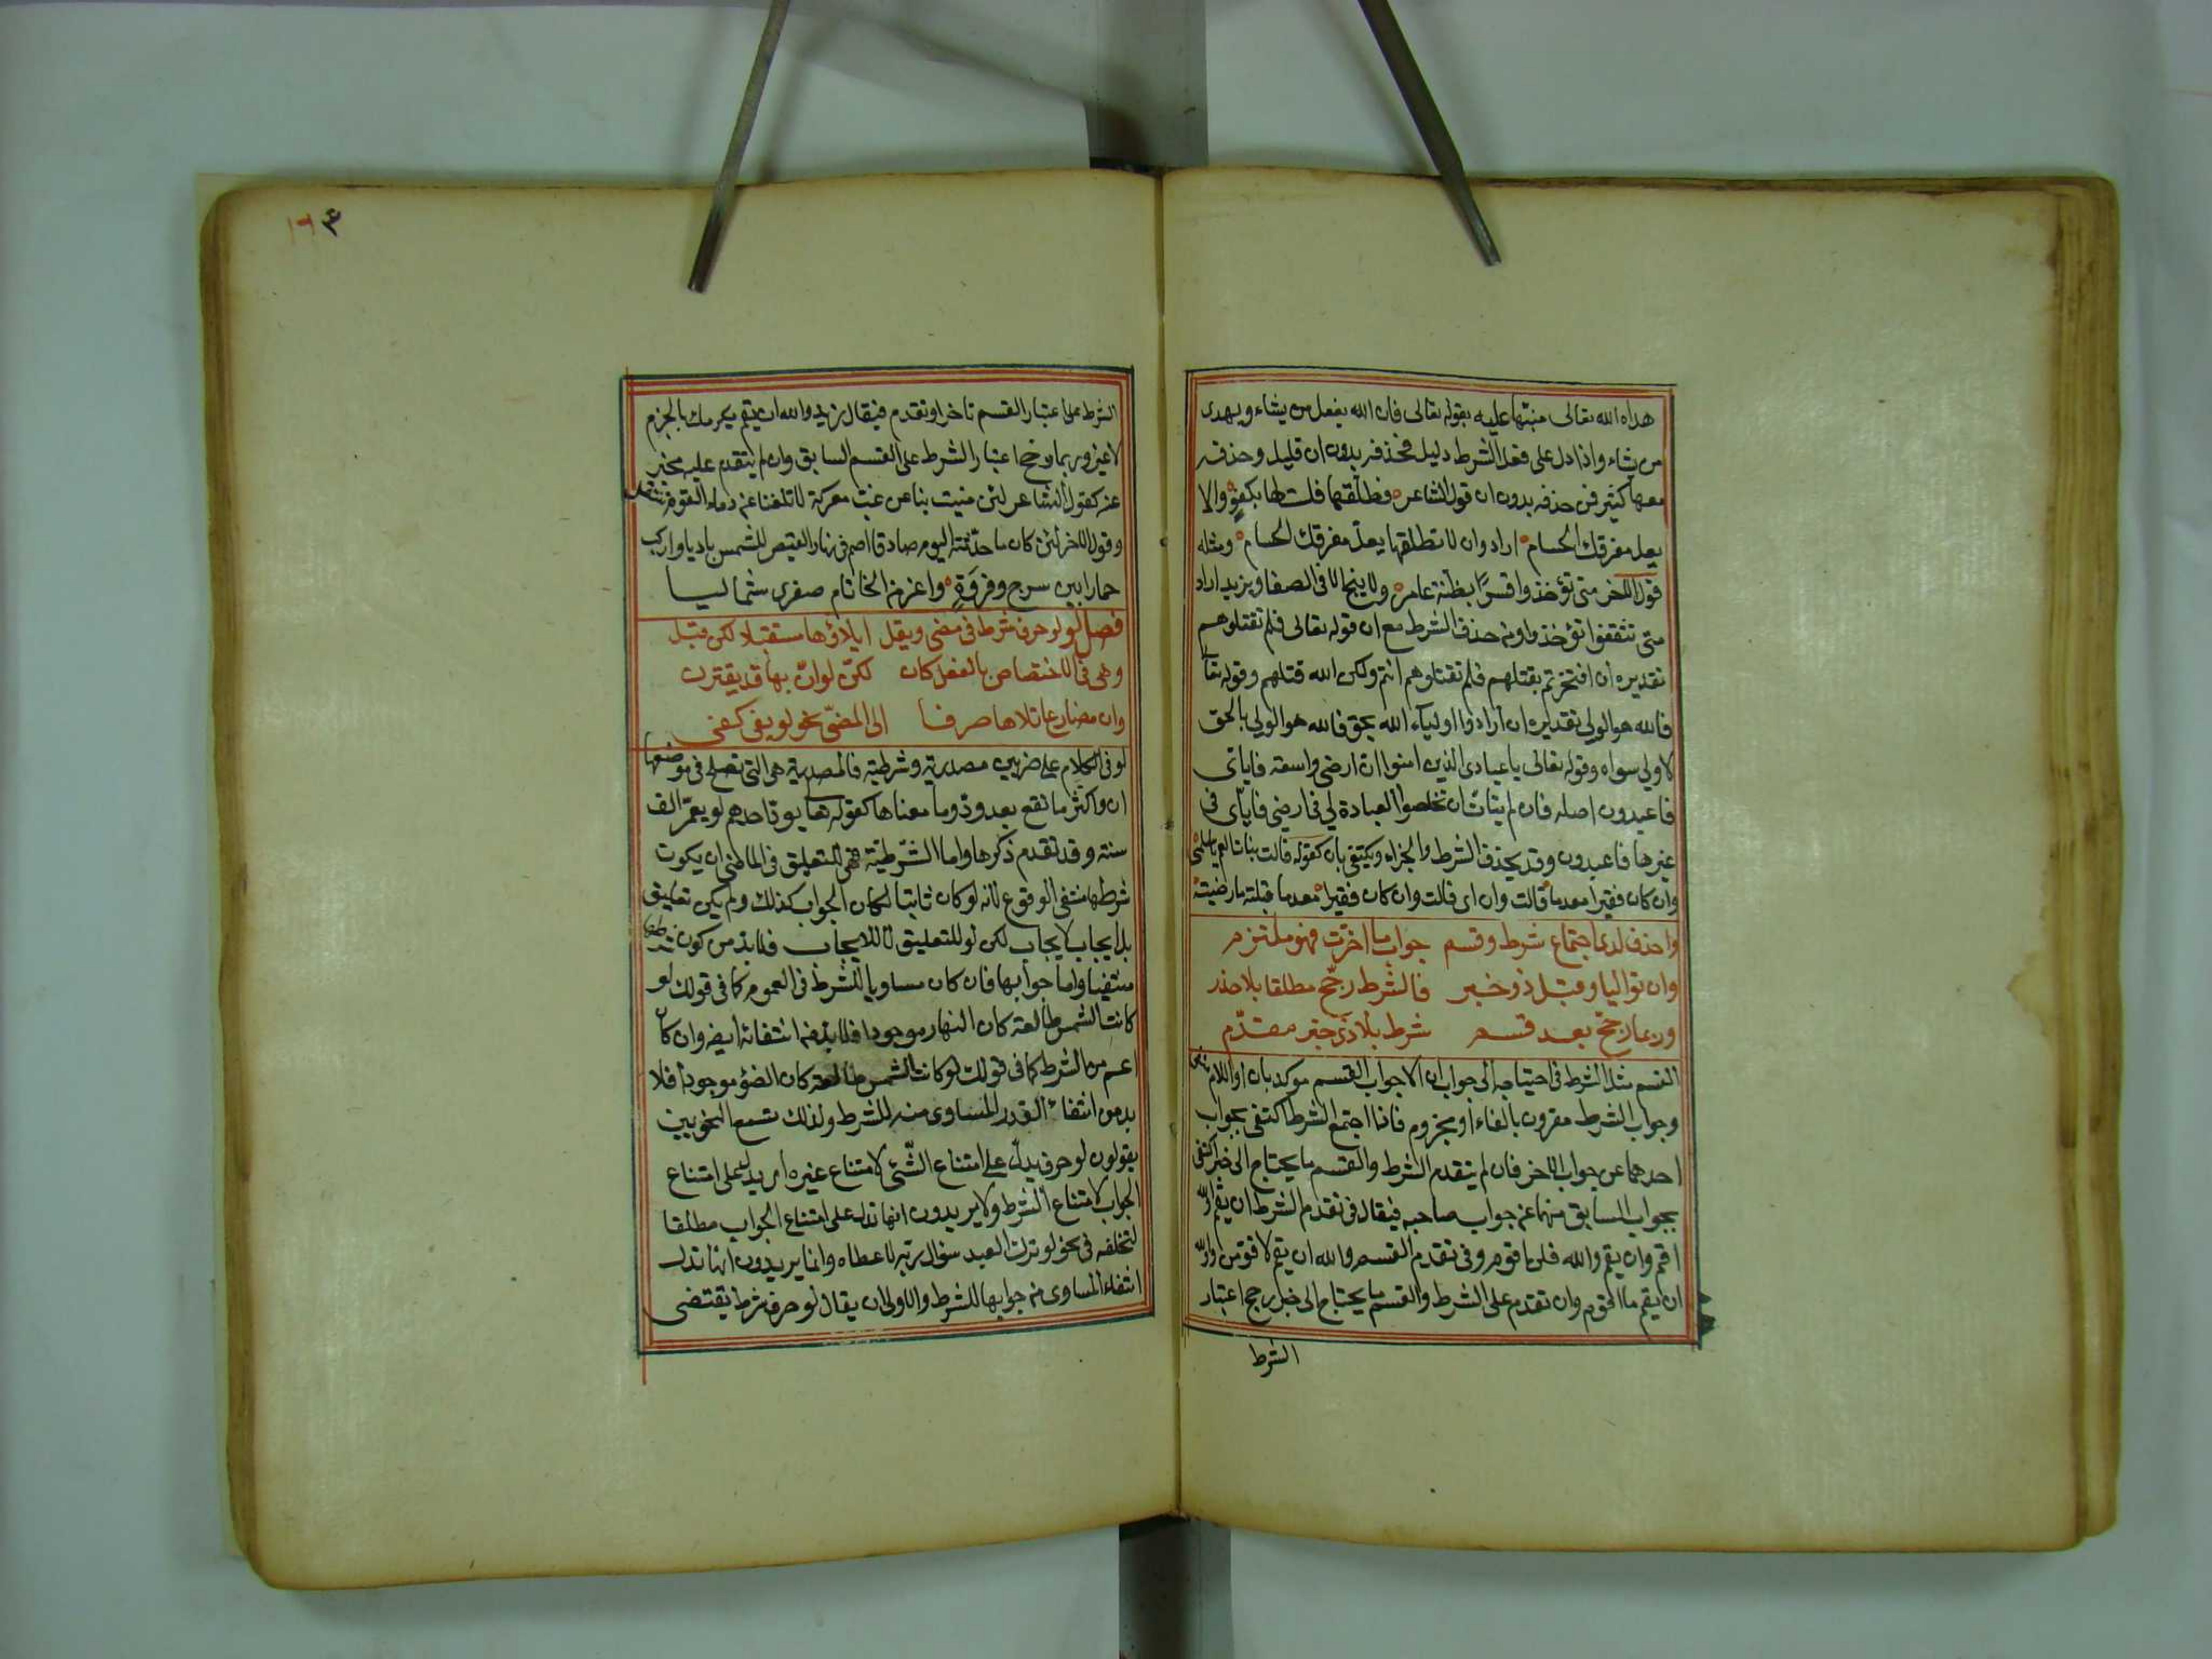 هداه الله تعالى منبها عليه بقوله تعالى فان الله يضل من يشاء ويهدى
من يشاء واذا دل على فعل الشرط دليل فحذفه بدون ان قليل وحذفه
معها كثير فمن حذفه بدون ان قول الشاعر فطلقها فلست لها بكفؤ والا
يعل مفرقك الحسام اراد وان لا تطلقها يعل مفرقك الحسام ومثله
قول الاخر متى تؤخذوا قسرا بظنة عامر ولا ينج الا فى الصفاد يزيد اراد
متى تثقفوا تؤخذوا ومن حذف الشرط مع ان قوله تعالى فلم تقتلوهم
تقديره ان افتخرتم بقتلهم فلم تقتلوهم انتم ولكن الله قتلهم وقوله تعا
فالله هو الولى تقديره ان ارادوا اولياء الله بحق فالله هو الولى بالحق
لا ولى سواه وقوله تعالى يا عبادى الذين امنوا ان ارضى واسعة فاياى
فاعبدون اصله فان لم يتأت ان تخلصوا العبادة لى فى ارضى فاياى فى
غيرها فاعبدون وقد يحذف الشرط والجزاء ويكتفى بان كقوله قالت بنات العم يا سلمى
وان كان فقيرا معدما قالت وان اى قالت وان كان فقيرا معدما قبلته رضيته
واحذف لدى اجتماع شرط وقسم جواب ما اخرت فهو ملتزم
وان تواليا وقبل ذو خبر فالشرط رجح مطلقا بلا حذر
وربما رجح بعد قسم شرط بلا ذى خبر مقدم
القسم مثل الشرط فى احتياجه الى جواب الا ان جواب القسم موكد بان او اللام
وجواب الشرط مقرون بالفاء او مجزوم فاذا اجتمع الشرط اكتفى بجواب
احدهما عن جواب الاخر فان لم يتقدم الشرط والقسم ما يحتاج الى خبر اكتفى
بجواب السابق منهما عن جواب صاحبه فيقال فى تقدم الشرط ان يقم والله
اقم وان يقم والله فلن اقوم وفى تقدم القسم والله ان يقم لاقومن والله
ان يقم ما اقوم وان تقدم على الشرط والقسم ما يحتاج الى خبر رجح اعتبار
الشرط
١٦٣
الشرط على اعتبار القسم تاخر او تقدم فيقال زيد والله ان يقم يكرمك بالجزم
لا غير وربما رجح اعتبار الشرط على القسم السابق وان لم يتقدم عليه مخبر
عنه كقول الشاعر لئن منيت بنا عن غب معركة لا تلفنا عن دماء القوم ننتفل
وقول الاخر لئن كان ما حدثته اليوم صادقا اصم فى نهار القيظ للشمس باديا واركب
حمارا بين سرج وفروة واعر من الخاتام صغرى شماليا
فصل لو لو حرف شرط فى مضى ويقل ايلاؤها مستقبلا لكن قبل
وهى فى الاختصاص بالفعل كان لكن لو ان بها قد يقترن
وان مضارع تلاها صرفا الى المضى نحو لو يفى كفى
لو فى الكلام على ضربين مصدرية وشرطية فالمصدرية هى التى تصلح فى موضعها
ان واكثر ما تقع بعد ود وما معناها كقوله تعا يود احدهم لو يعمر الف
سنة وقد تقدم ذكرها واما الشرطية فهى للتعليق فى الماضى ان يكون
شرطها منتفى الوقوع لانه لو كان ثابتا لكان الجواب كذلك ولم يكن تعليق
بل ايجاب لايجاب لكن لو للتعليق لا للايجاب فلا بد من كون شرطها
منتفيا واما جوابها فان كان مساويا للشرط فى العموم كما فى قولك لو
كانت الشمس طالعة كان النهار موجودا فلا بد من انتفائه ايضا وان كان
اعم من الشرط كما فى قولك لو كانت الشمس طالعة كان الضوء موجودا فلا
بد من انتفاء القدر المساوى منه للشرط ولذلك تسمع النحويين
يقولون لو حرف يدل على امتناع الشئ لامتناع غيره اى يدل على امتناع
الجواب لامتناع الشرط ولا يريدون انها تدل على امتناع الجواب مطلقا
لتخلفه فى نحو لو ترك العبد سؤال ربه لاعطاه وانما يريدون انها تدل
انتفاء المساوى من جوابها للشرط والاولى ان يقال لو حرف شرط يقتضى